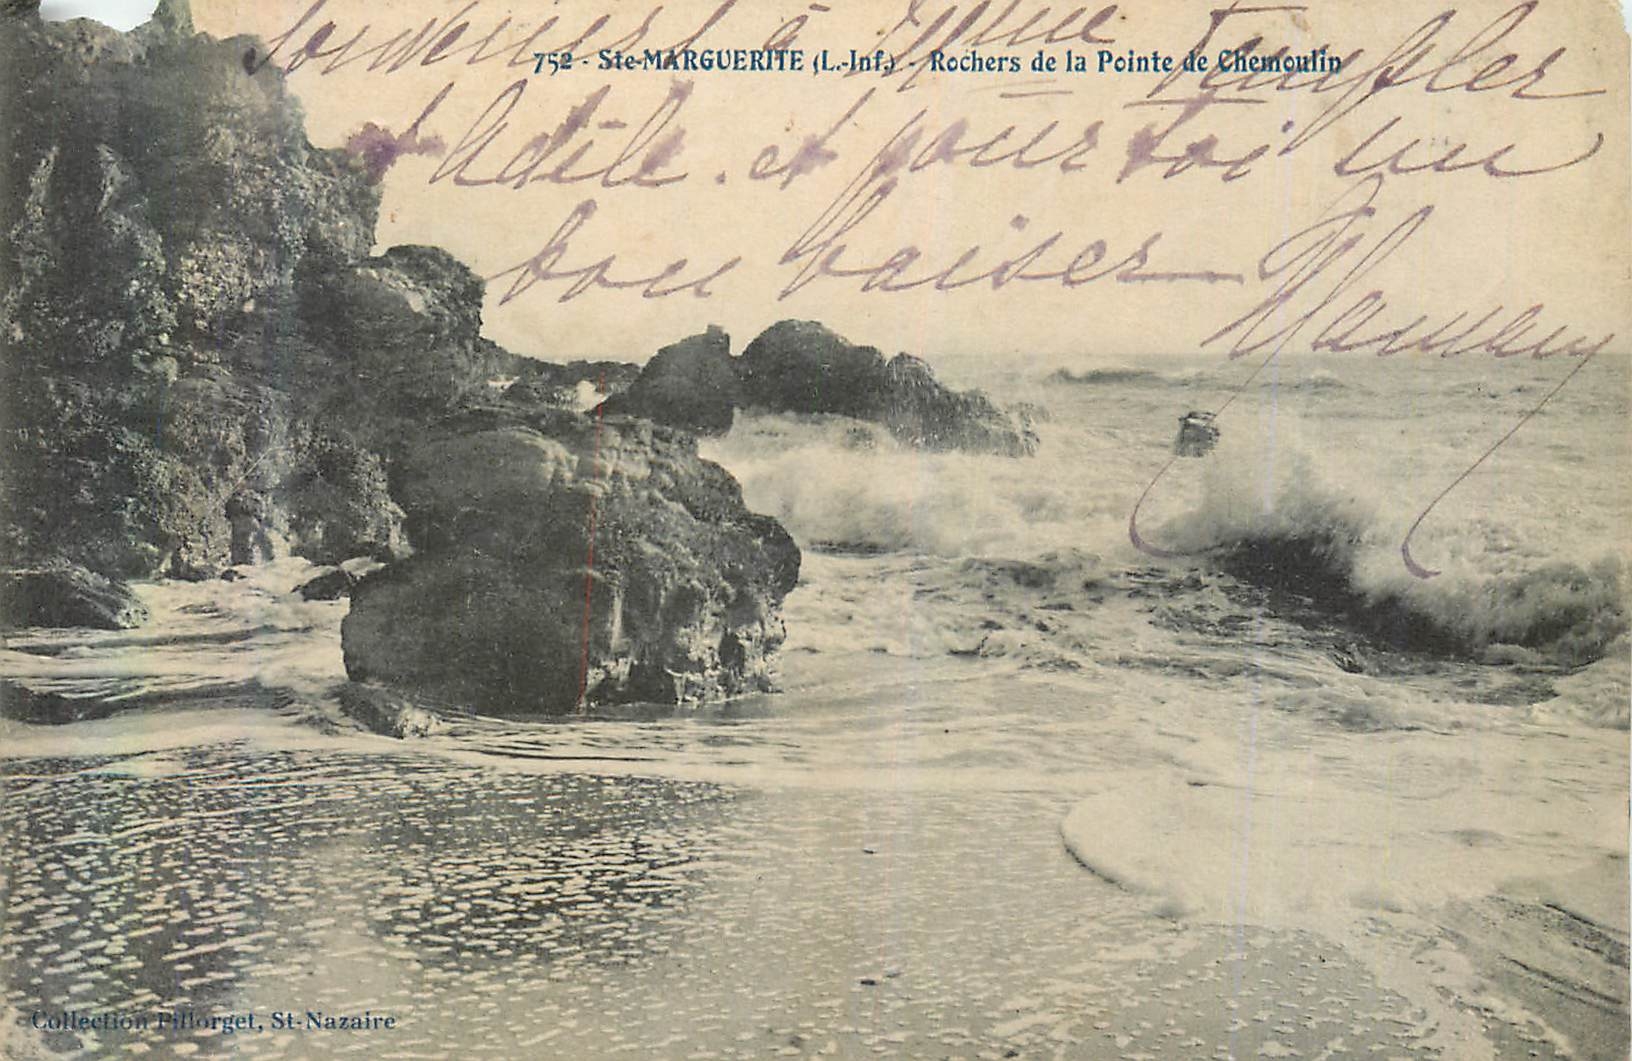 Souvenirs à Mme Templer
752 - Ste-MARGUERITE (L.-Inf.) - Rochers de la Pointe de Chemoulin
et Adèle. et pour toi un
bon baiser
Collection Pillorget, St-Nazaire